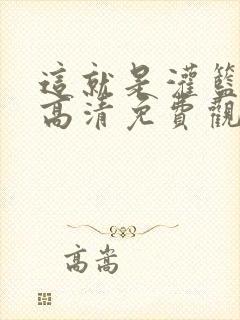 這就是灌籃
高清免費觀
高嵩